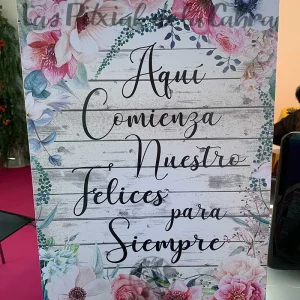 Las Pitxiak de la Cabra
Aquí
Comienza
Nuestro
Felices
para
Siempre